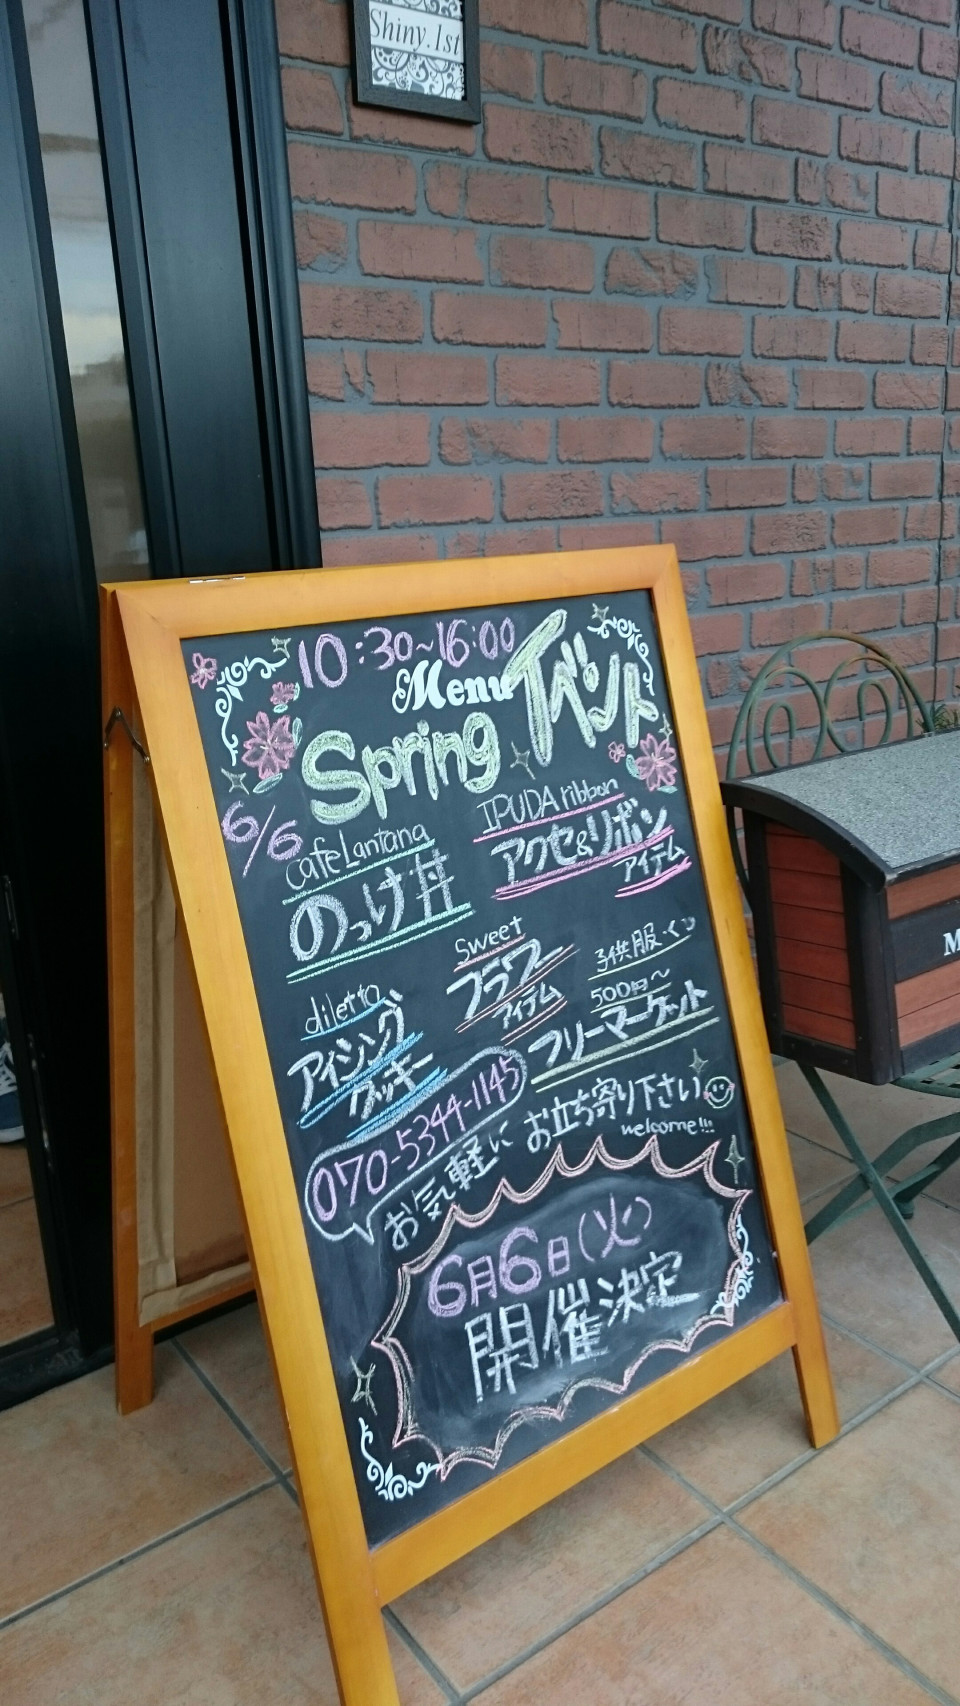 Shiny.1st
10:30~16:00
Menu
Spring イベント
6/6
cafe Lantana
のっけ丼
IPUDA ribbon
アクセ&リボン
アイテム
sweet
フラワー
アイテム
子供服・くつ
500円~
フリーマーケット
diletto
アイシング
クッキー
070-5344-1145
お気軽に
お立ち寄り下さい
welcome!!!
6月6日(火)
開催決定
M